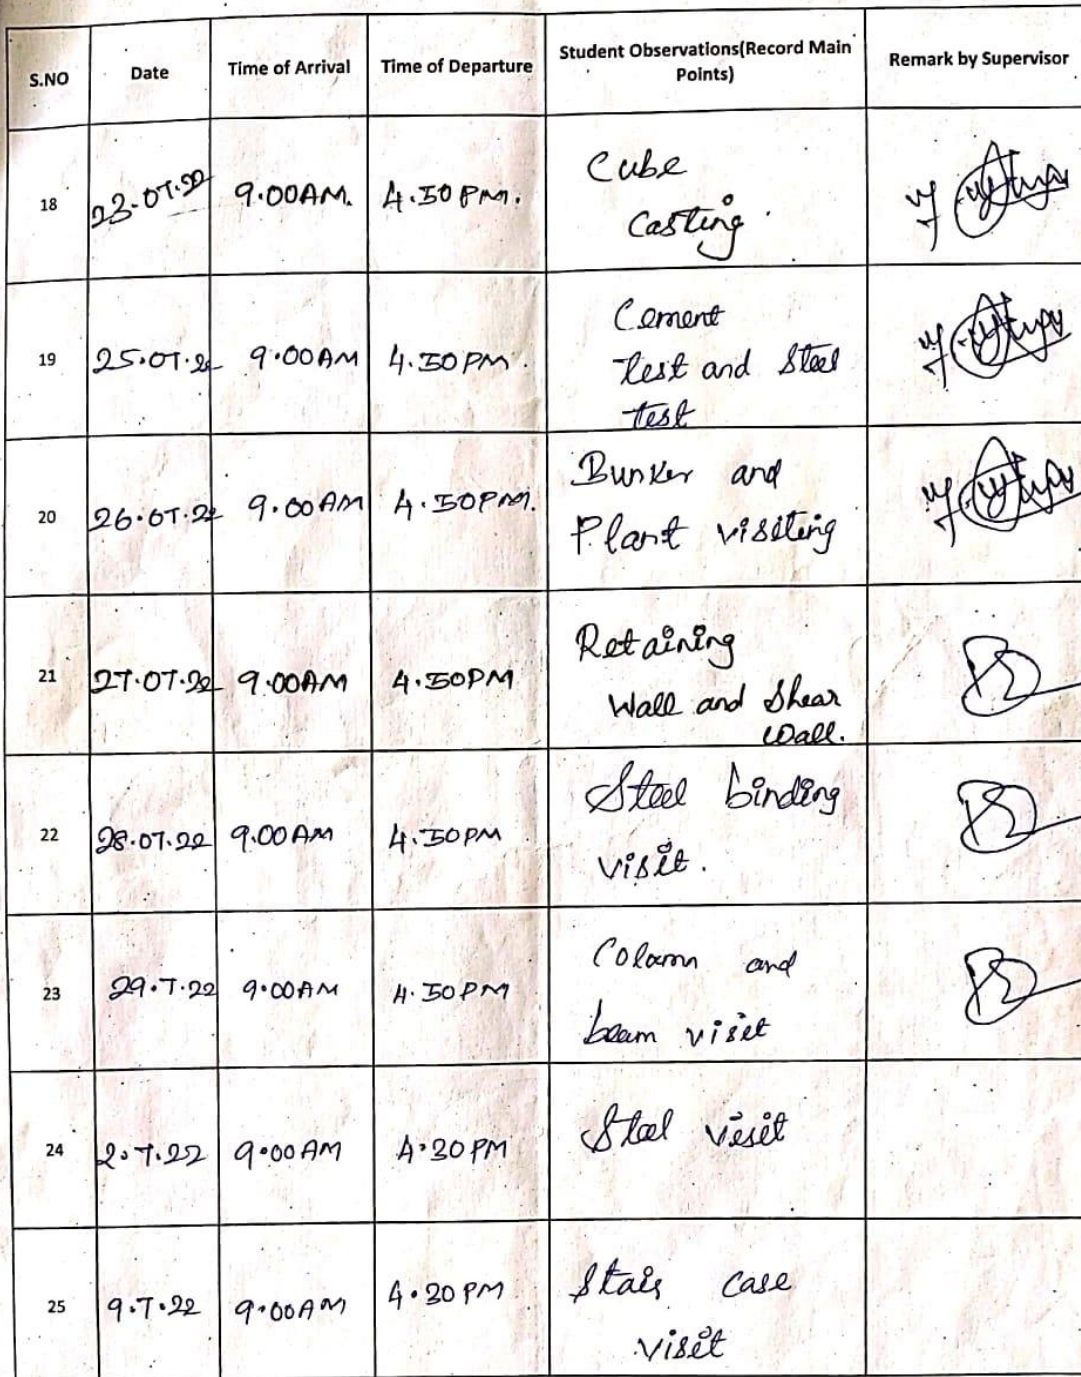 S.NO Date Time of Arrival Time of Departure Student Observations(Record Main
Points) Remark by Supervisor
18 23.07.22 9.00AM. 4.30 PM. Cube
Casting.
19 25.07.22 9.00AM 4.30PM. Cement
test and Steel
test
20 26.07.22 9.00AM 4.30PM. Bunker and
Plant visiting
21 27.07.22 9.00AM 4.30PM Retaining
Wall and Shear
Wall.
22 28.07.22 9.00AM 4.30PM Steel binding
visit.
23 29.7.22 9.00AM 4.30PM Colamn and
beam visit
24 2.7.22 9.00AM 4.30PM Steel visit
25 9.7.22 9.00AM 4.30PM Stair case
visit